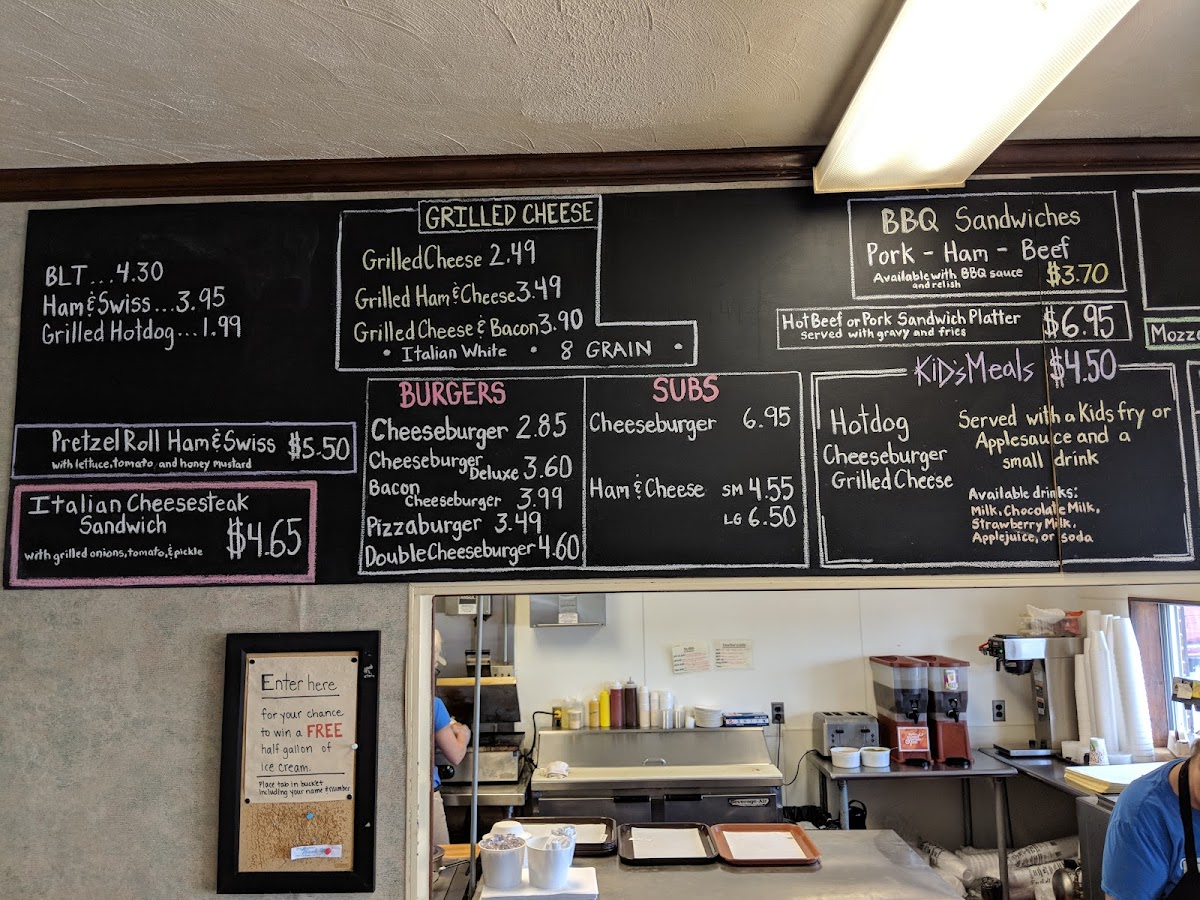 BLT...4.30
Ham & Swiss...3.95
Grilled Hotdog...1.99
Pretzel Roll Ham & Swiss $5.50
with lettuce, tomato, and honey mustard
Italian Cheesesteak
Sandwich
with grilled onions, tomato, & pickle $4.65
GRILLED CHEESE
Grilled Cheese 2.49
Grilled Ham & Cheese 3.49
Grilled Cheese & Bacon 3.90
• Italian White • 8 GRAIN •
BURGERS
Cheeseburger 2.85
Cheeseburger Deluxe 3.60
Bacon Cheeseburger 3.99
Pizzaburger 3.49
Double Cheeseburger 4.60
SUBS
Cheeseburger 6.95
Ham & Cheese SM 4.55
LG 6.50
BBQ Sandwiches
Pork - Ham - Beef
Available with BBQ sauce
and relish $3.70
Hot Beef or Pork Sandwich Platter $6.95
served with gravy and fries
Kid's Meals $4.50
Hotdog
Cheeseburger
Grilled Cheese
Served with a Kids fry or
Applesauce and a
small drink
Available drinks:
Milk, Chocolate Milk,
Strawberry Milk,
Applejuice, or soda
Mozz
Enter here
for your chance
to win a FREE
half gallon of
ice cream.
Place tab in bucket
including your name & number
Beverage-Air